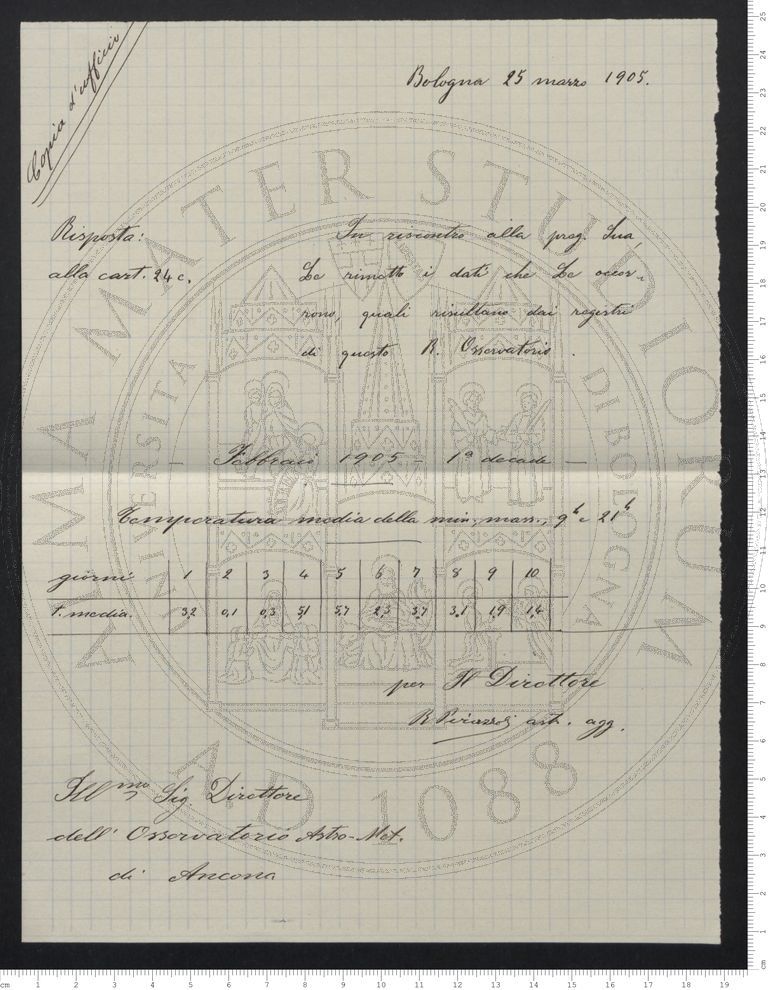 Copia d'ufficio
Bologna 25 marzo 1905.
Risposta:
alla cart. 24 c.
In riscontro alla preg. Sua,
Le rimetto i dati che Le occor-
rono, quali risultano dai registri
di questo R. Osservatorio.
— Febbraio 1905 — 1ª decade —
Temperatura media della min, mass, 9h e 21h
giorni 1 2 3 4 5 6 7 8 9 10
T. media. 3,2 0,1 0,3 5,1 5,7 2,3 3,7 3,1 1,9 1,4
per Il Direttore
R. Pirazzoli ast. agg.
Ill.mo Sig. Direttore
dell' Osservatorio Astro-Met.
di Ancona
ALMA MATER STUDIORUM
UNIVERSITA DI BOLOGNA
A.D. 1088